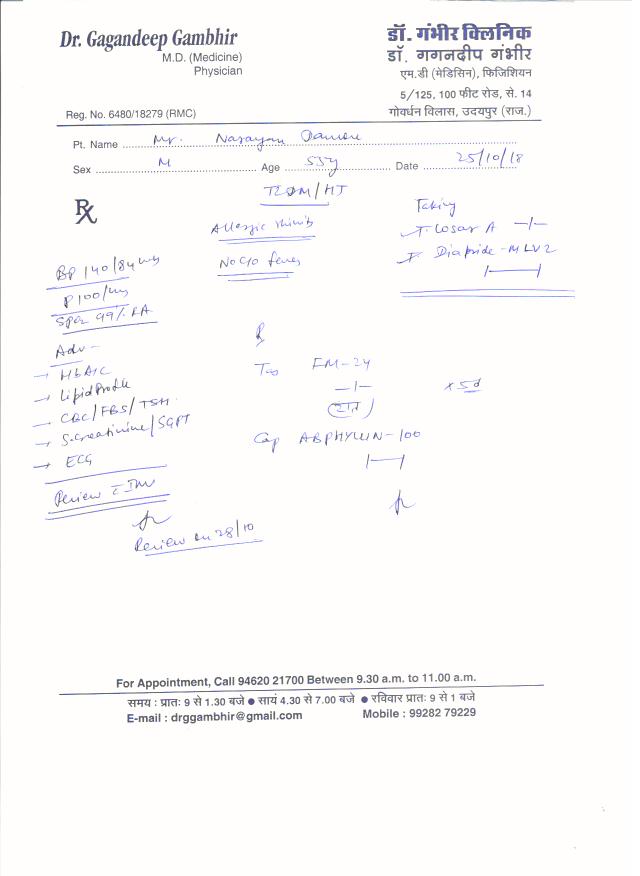 Dr. Gagandeep Gambhir
M.D. (Medicine)
Physician
Reg. No. 6480/18279 (RMC)
डॉ. गंभीर क्लिनिक
डॉ. गगनदीप गंभीर
एम.डी (मेडिसिन), फिजिशियन
5/125, 100 फीट रोड, से. 14
गोवर्धन विलास, उदयपुर (राज.)
Pt. Name Mr. Narayan
Sex M Age 55y Date 25/10/18
T2DM/HT
Rx
Allergic rhinitis
No C/O fever
Taking
T. Losar A -1-
T. Diapride-M LV2
1——1
BP 140/84
P 100/
SpO2 99% RA
Adv-
→ HbA1C
→ Lipid Profile
→ CBC/FBS/TSH
→ S.Creatinine/SGPT
→ ECG
Review
Review on 28/10
Rx
Tab FM-24
-1-
x 5d
(रात)
Cap ABPHYLLIN-100
1——1
For Appointment, Call 94620 21700 Between 9.30 a.m. to 11.00 a.m.
समय : प्रातः 9 से 1.30 बजे ● सायं 4.30 से 7.00 बजे ● रविवार प्रातः 9 से 1 बजे
E-mail : drggambhir@gmail.com Mobile : 99282 79229